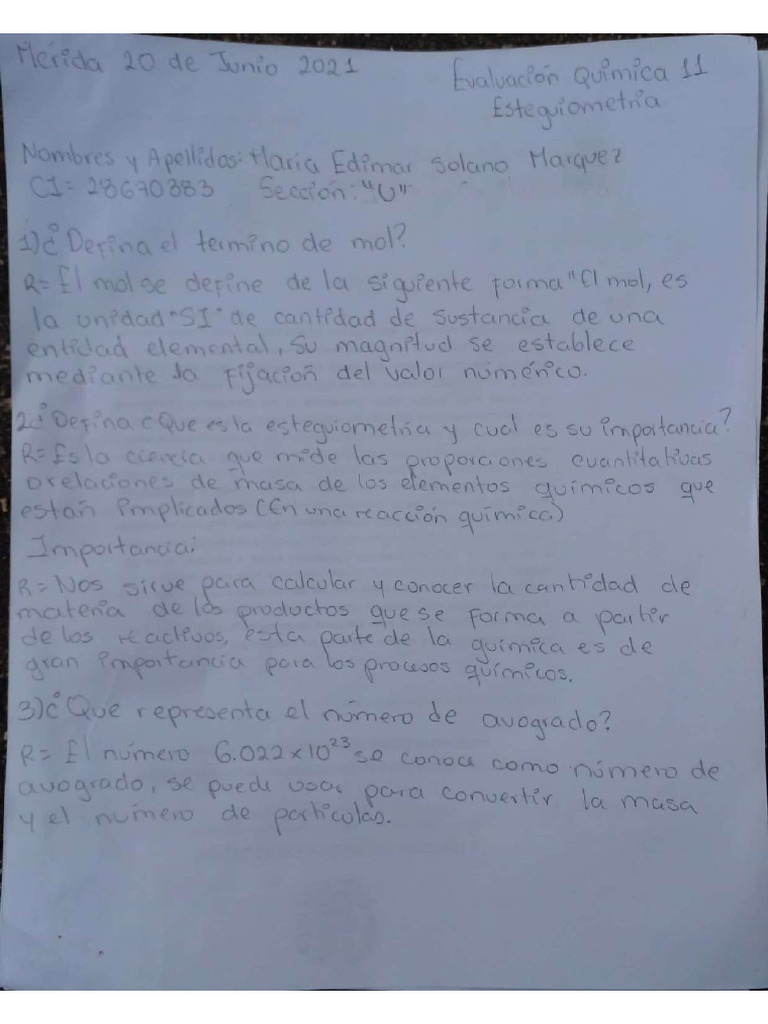 Mérida 20 de Junio 2021
Evaluación Química 11
Esteguiometría
Nombres y Apellidos: Maria Edimar Solano Marquez
CI= 28670383 Sección: "U"
1)¿ Defina el termino de mol?
R= El mol se define de la siguiente forma "El mol, es
la unidad "SI" de cantidad de sustancia de una
entidad elemental, su magnitud se establece
mediante la fijación del valor numérico.
2¿ Defina ¿Que es la esteguiometría y cual es su importancia?
R= Es la ciencia que mide las proporciones cuantitativas
o relaciones de masa de los elementos químicos que
están implicados (En una reacción química)
Importancia:
R= Nos sirve para calcular y conocer la cantidad de
materia de los productos que se forma a partir
de los reactivos, esta parte de la química es de
gran importancia para los procesos químicos.
3)¿ Que representa el número de avogrado?
R= El número 6.022x10²³ se conoce como número de
avogrado, se puede usar para convertir la masa
y el número de partículas.